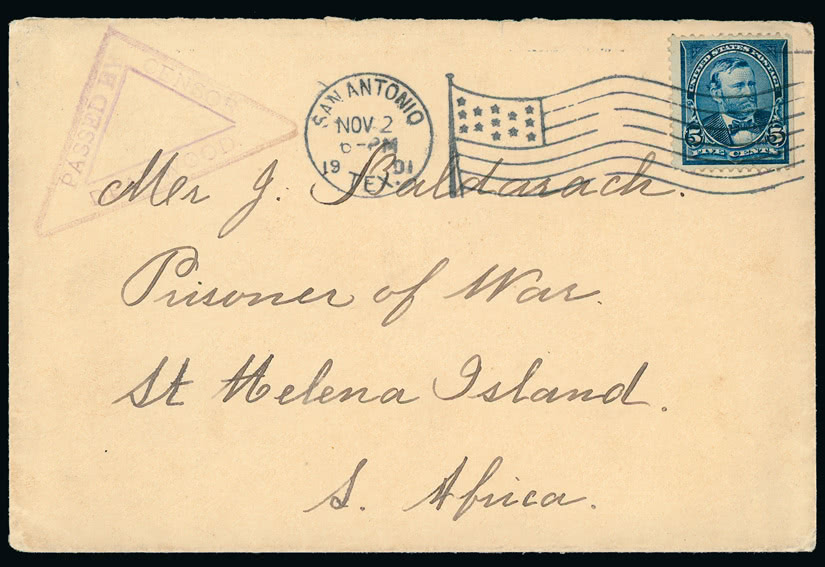 PASSED BY
CENSOR
DEADWOOD
SAN ANTONIO
NOV 2
6-PM
1901
TEX.
UNITED STATES POSTAGE
5 5
FIVE CENTS
Mr J.
Prisoner of War.
St Helena Island.
S. Africa.